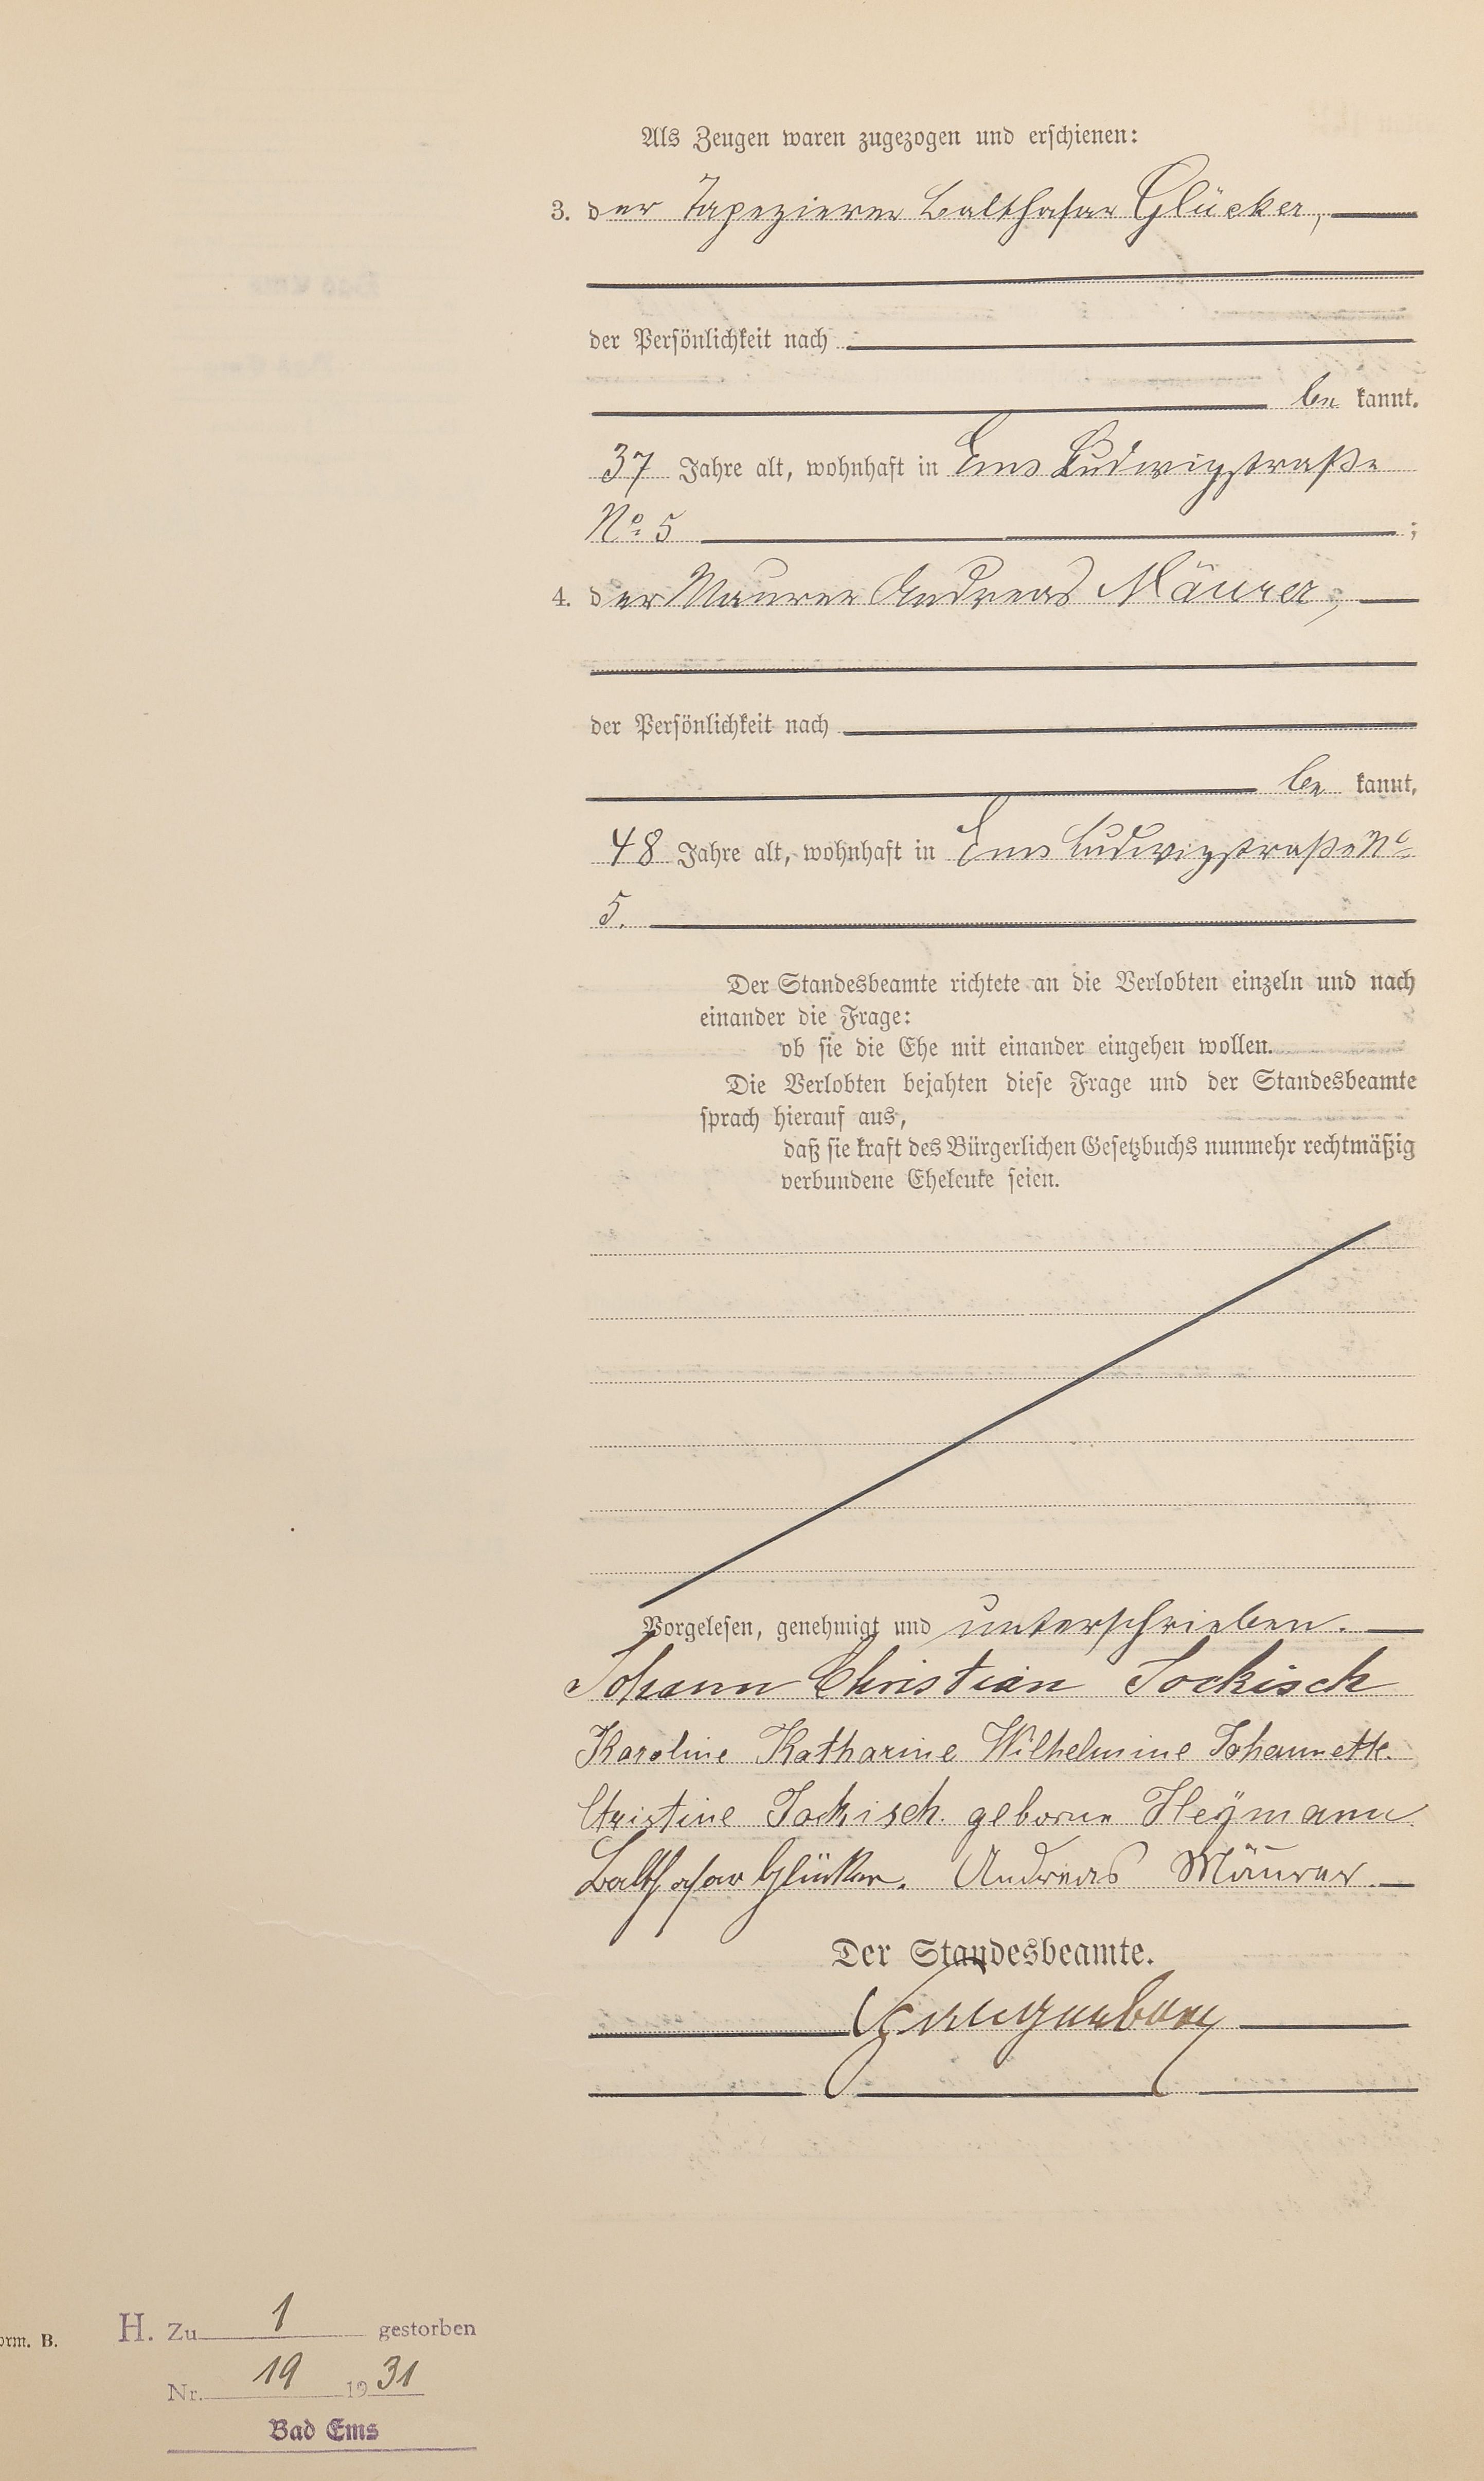 Als Zeugen waren zugezogen und erschienen:
3. der Tapezierer Balthasar Glücker,
der Persönlichkeit nach
be kannt.
37 Jahre alt, wohnhaft in Ems Ludwigstraße
No. 5 ;
4. der Maurer Andreas Mäurer,
der Persönlichkeit nach
be kannt,
48 Jahre alt, wohnhaft in Ems Ludwigstraße No
5.
Der Standesbeamte richtete an die Verlobten einzeln und nach
einander die Frage:
ob sie die Ehe mit einander eingehen wollen.
Die Verlobten bejahten diese Frage und der Standesbeamte
sprach hierauf aus,
daß sie kraft des Bürgerlichen Gesetzbuchs nunmehr rechtmäßig
verbundene Eheleute seien.
Vorgelesen, genehmigt und unterschrieben.
Johann Christian Jockisch
Karoline Katharine Wilhelmine Johannette
Christine Jockisch geborne Heÿmann
Balthasar Glücker. Andreas Mäurer.
Der Standesbeamte.
orm. B.
H. Zu 1 gestorben
Nr. 19 1931
Bad Ems